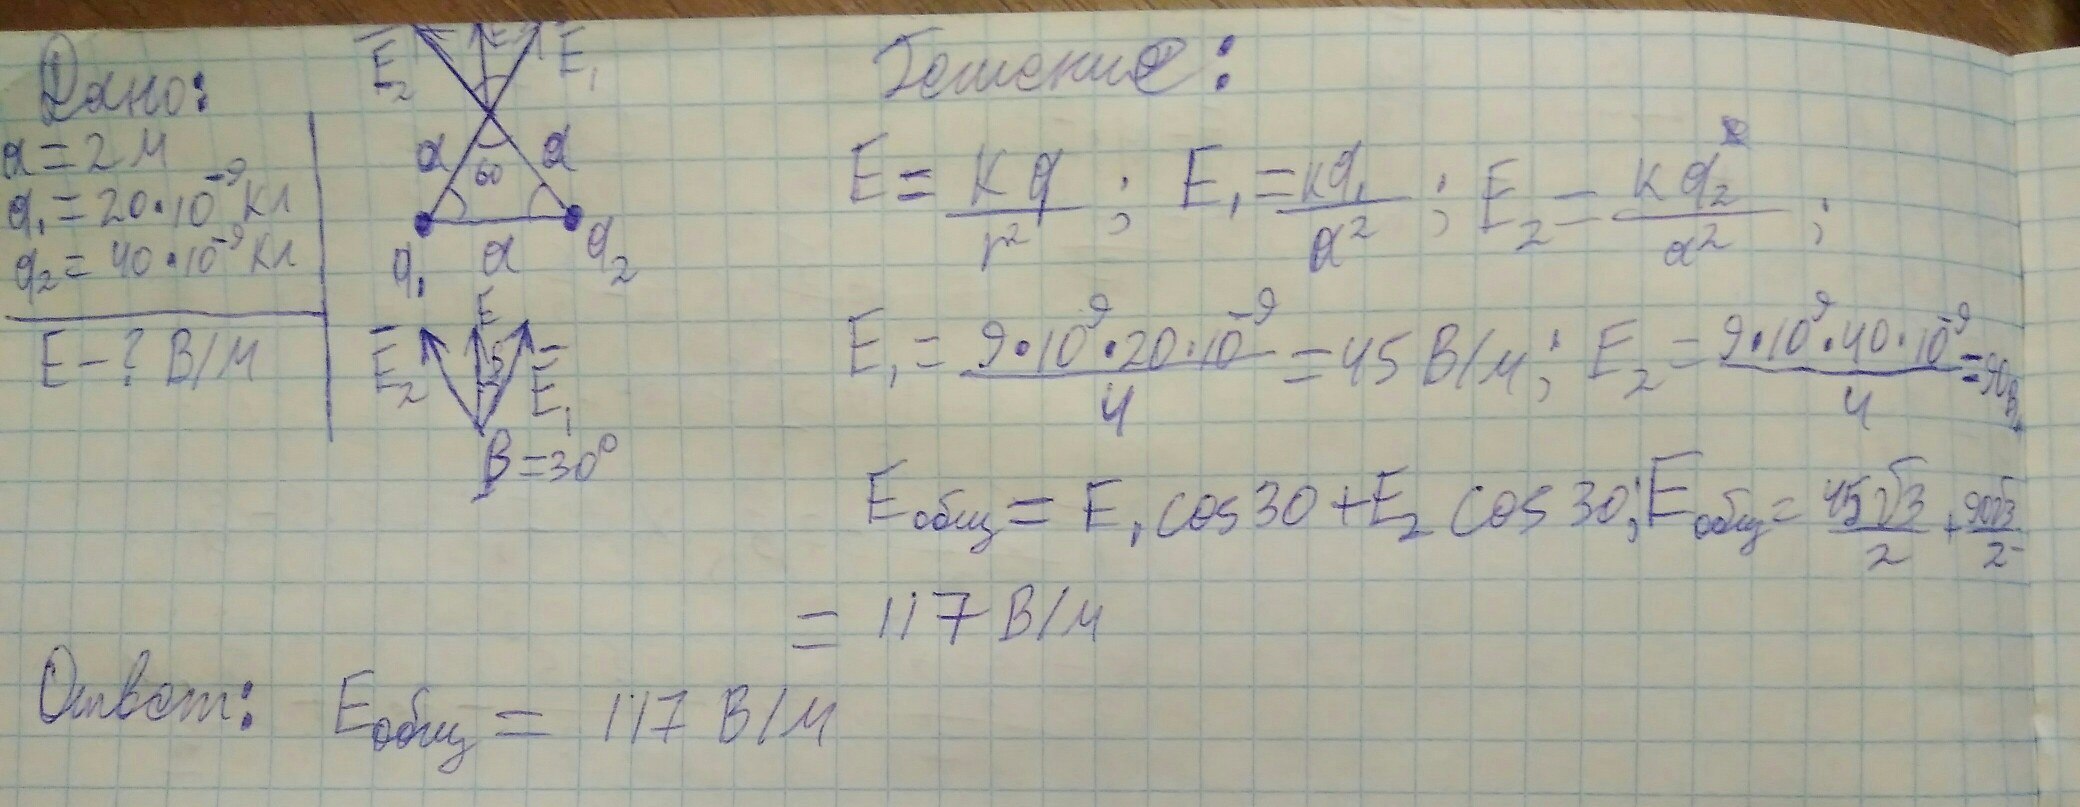 Дано:
a = 2 м
q₁ = 20·10⁻⁹ Кл
q₂ = 40·10⁻⁹ Кл
E - ? В/м
E₂ E E₁
a a
60
q₁ a q₂
E
E₂ E₁
B = 30°
Решение:
E = kq/r² ; E₁ = kq₁/a² ; E₂ = kq₂/a² ;
E₁ = 9·10⁹·20·10⁻⁹/4 = 45 В/м ; E₂ = 9·10⁹·40·10⁻⁹/4 = 90 В
Eобщ = E₁ cos 30 + E₂ cos 30 ; Eобщ = 45√3/2 + 90√3/2
= 117 В/м
Ответ: Eобщ = 117 В/м